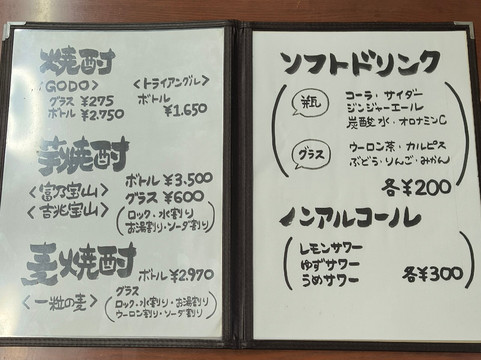 焼酎
〈GODO〉
グラス ¥275
ボトル ¥2.750
〈トライアングル〉
ボトル
¥1.650
芋焼酎
〈富乃宝山〉
〈吉兆宝山〉
ボトル ¥3.500
グラス ¥600
(ロック・水割り
お湯割り・ソーダ割り)
麦焼酎
〈一粒の麦〉
ボトル ¥2.970
グラス
(ロック・水割り・お湯割り
ウーロン割り・ソーダ割り)
ソフトドリンク
瓶
コーラ・サイダー
ジンジャーエール
炭酸水・オロナミンC
グラス
ウーロン茶・カルピス
ぶどう・りんご・みかん
各¥200
ノンアルコール
レモンサワー
ゆずサワー
うめサワー
各¥300